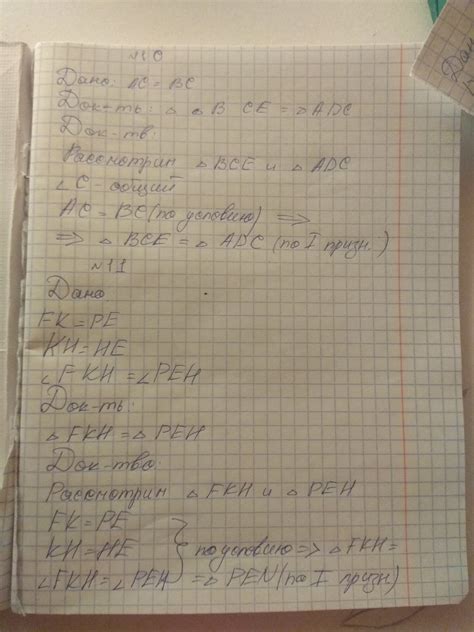 №10
Дано: AC = BC
Док-ть: △ BCE = △ADC
Док-тв:
Рассмотрим △BCE и △ADC
∠C - общий
AC = BC (по условию) ⟹
⟹ △ BCE = △ ADC (по I призн.)
№11
Дано:
FK = PE
KH = HE
∠FKH = ∠PEH
Док-ть:
△FKH = △PEH
Док-тво
Рассмотрим △FKH и △PEH
FK = PE
KH = HE } по условию ⟹ △FKH =
∠FKH = ∠PEH = △PEN (по I призн)
Дан